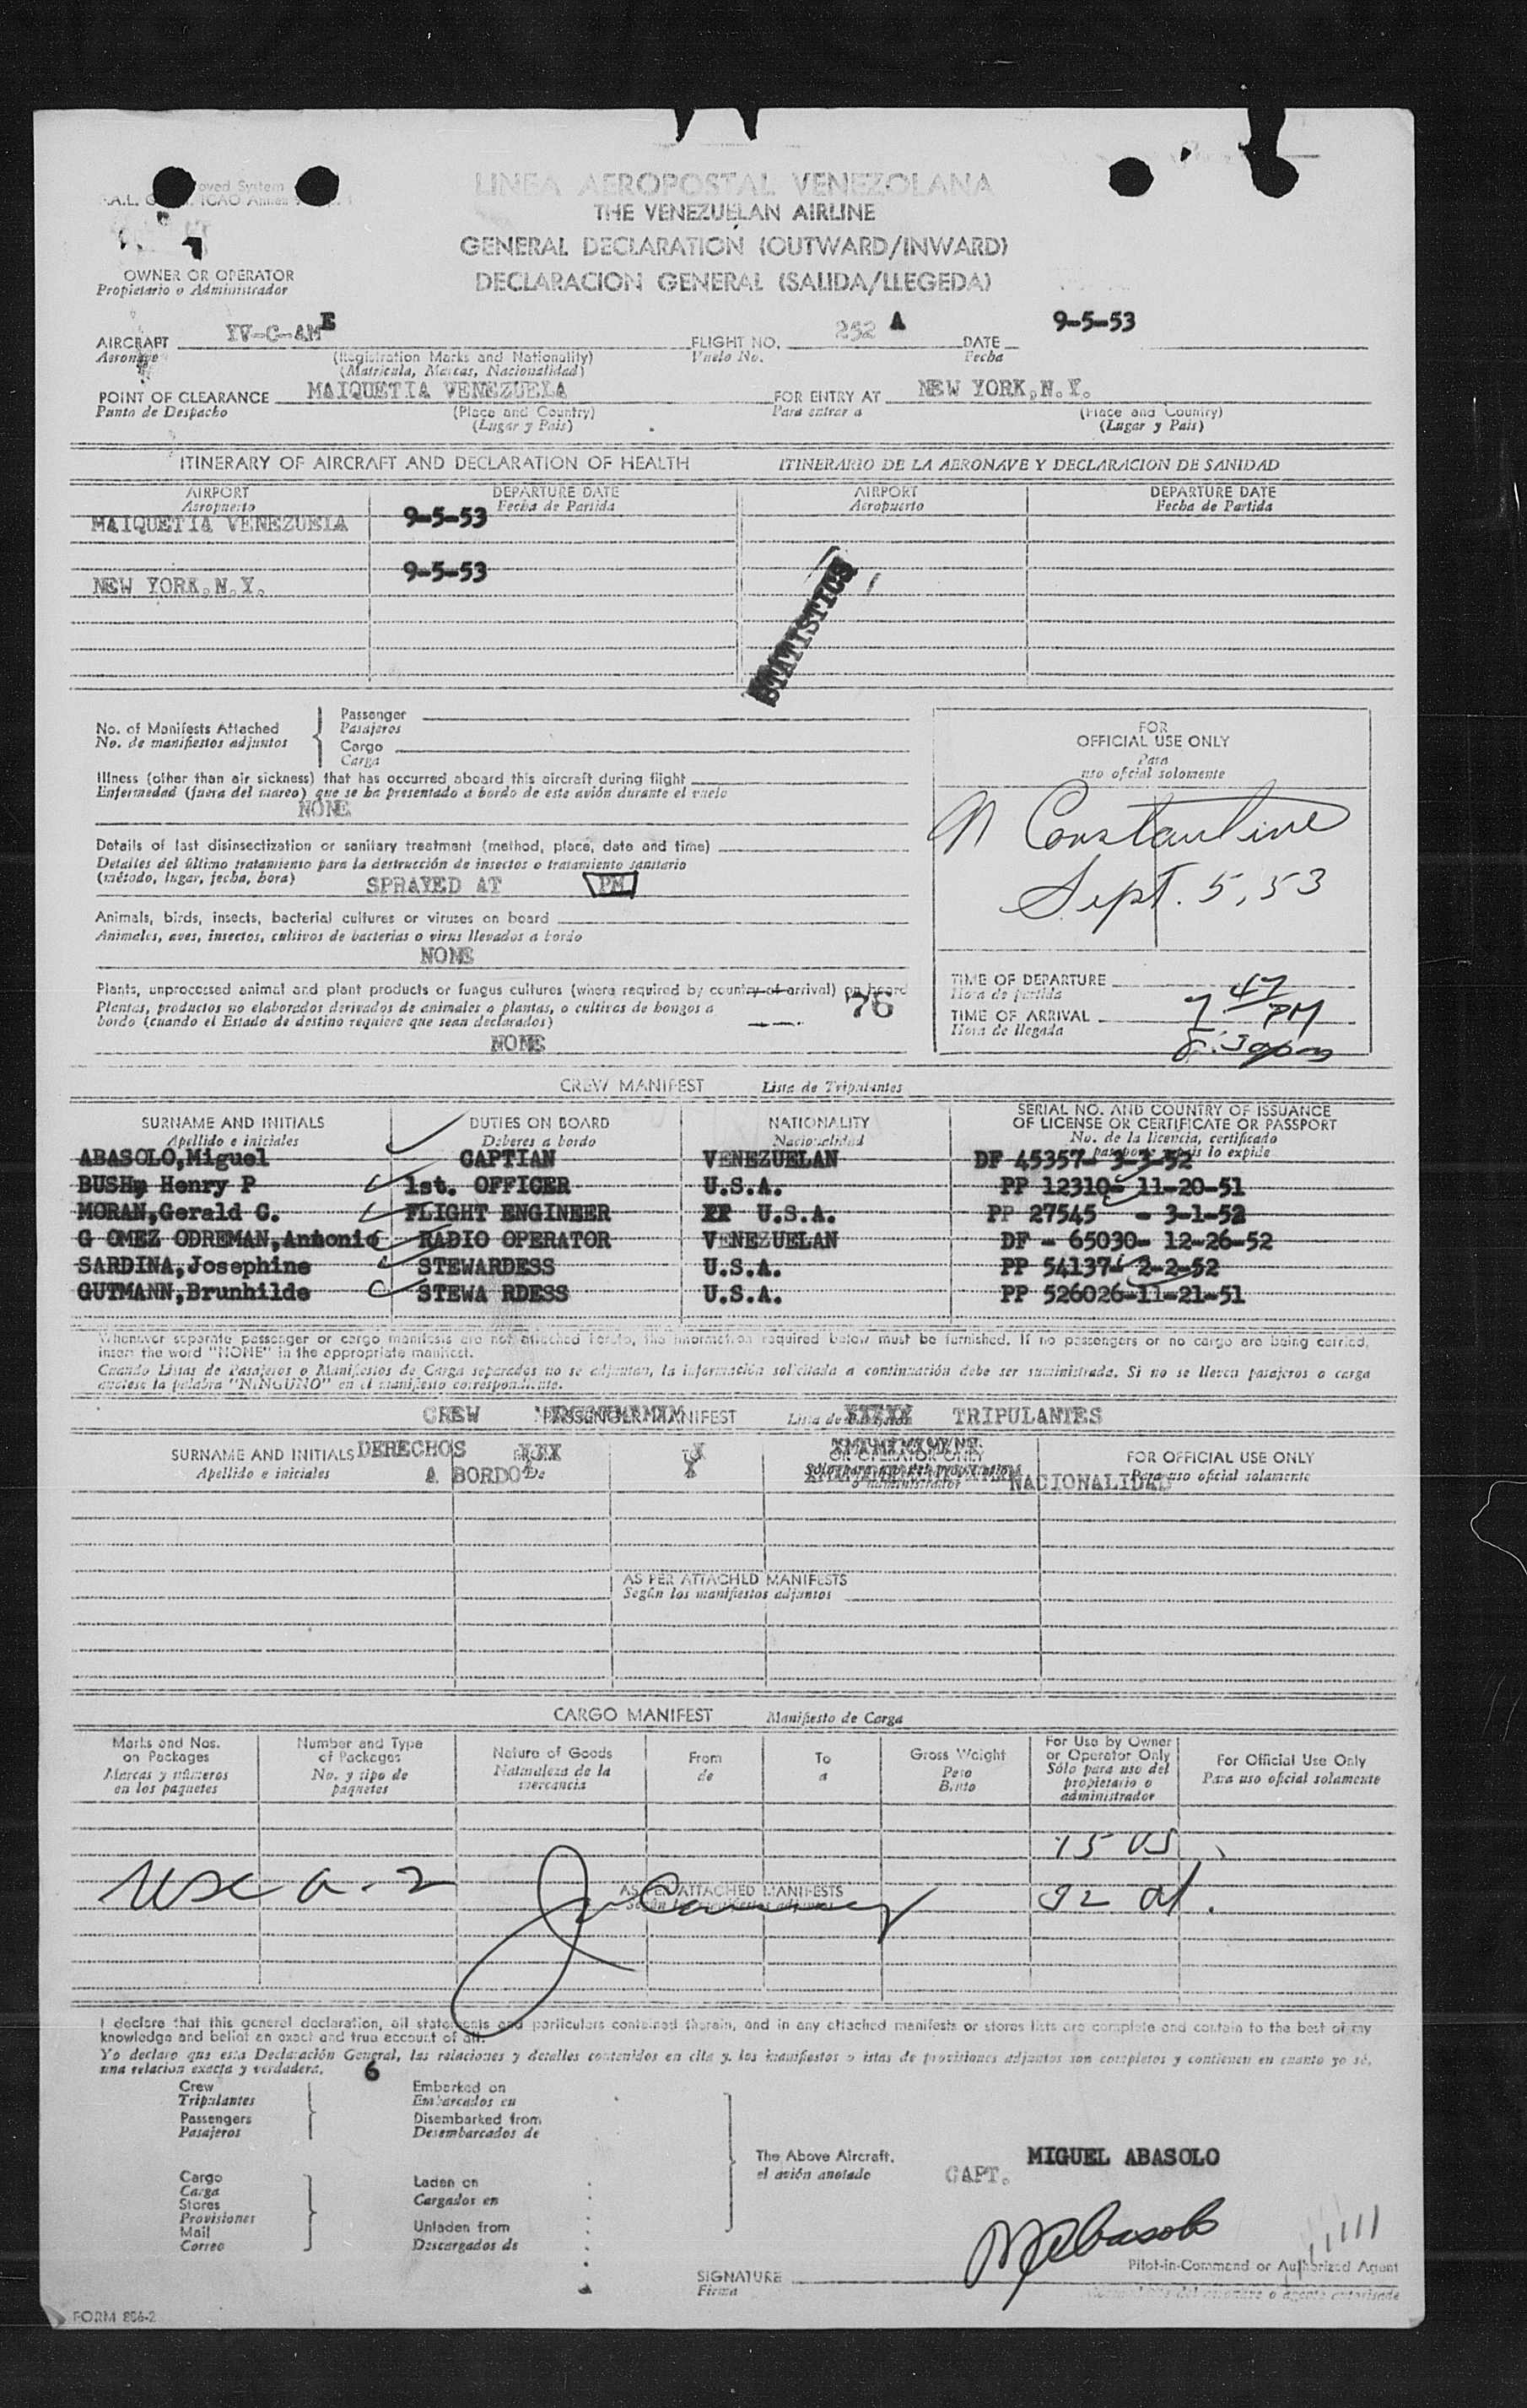 oved System
LINEA AEROPOSTAL VENEZOLANA
THE VENEZUELAN AIRLINE
GENERAL DECLARATION (OUTWARD/INWARD)
DECLARACION GENERAL (SALIDA/LLEGEDA)
OWNER OR OPERATOR
Propietario o Administrador
AIRCRAFT YV-C-AME FLIGHT NO. 252 A DATE 9-5-53
Aeronave (Registration Marks and Nationality) Vuelo No. Fecha
(Matricula, Marcas, Nacionalidad)
POINT OF CLEARANCE MAIQUETIA VENEZUELA FOR ENTRY AT NEW YORK,N.Y.
Punto de Despacho (Place and Country) Para entrar a (Place and Country)
(Lugar y Pais) (Lugar y Pais)
ITINERARY OF AIRCRAFT AND DECLARATION OF HEALTH ITINERARIO DE LA AERONAVE Y DECLARACION DE SANIDAD
AIRPORT DEPARTURE DATE AIRPORT DEPARTURE DATE
Aeropuerto Fecha de Partida Aeropuerto Fecha de Partida
MAIQUETIA VENEZUELA 9-5-53
NEW YORK,N.Y. 9-5-53
STATISTICS
No. of Manifests Attached Passenger
No. de manifiestos adjuntos Pasajeros
Cargo
Carga
Illness (other than air sickness) that has occurred aboard this aircraft during flight
Enfermedad (fuera del mareo) que se ha presentado a bordo de este avión durante el vuelo
NONE
Details of last disinsectization or sanitary treatment (method, place, date and time)
Detalles del último tratamiento para la destrucción de insectos o tratamiento sanitario
(método, lugar, fecha, hora) SPRAYED AT PM
Animals, birds, insects, bacterial cultures or viruses on board
Animales, aves, insectos, cultivos de bacterias o virus llevados a bordo
NONE
Plants, unprocessed animal and plant products or fungus cultures (where required by country of arrival) on board
Plantas, productos no elaborados derivados de animales o plantas, o cultivos de hongos a
bordo (cuando el Estado de destino requiere que sean declarados) 76
NONE
FOR
OFFICIAL USE ONLY
Para
uso oficial solomente
N Constantine
Sept. 5, 53
TIME OF DEPARTURE
Hora de partida
TIME OF ARRIVAL 7 47 PM
Hora de llegada
8:30pm
CREW MANIFEST Lista de Tripulantes
SURNAME AND INITIALS DUTIES ON BOARD NATIONALITY SERIAL NO. AND COUNTRY OF ISSUANCE
OF LICENSE OR CERTIFICATE OR PASSPORT
Apellido e iniciales Deberes a bordo Nacionalidad No. de la licencia, certificado
ABASOLO,Miguel CAPTIAN VENEZUELAN DF 45357- 3-3-52
BUSH, Henry P 1st. OFFICER U.S.A. PP 12310- 11-20-51
MORAN,Gerald C. FLIGHT ENGINEER U.S.A. PP 27545 - 3-1-52
G OMEZ ODREMAN,Antonio RADIO OPERATOR VENEZUELAN DF - 65030- 12-26-52
SARDINA,Josephine STEWARDESS U.S.A. PP 54137- 2-2-52
GUTMANN,Brunhilde STEWA RDESS U.S.A. PP 526026-11-21-51
Whenever separate passenger or cargo manifests are not attached hereto, the information required below must be furnished. If no passengers or no cargo are being carried,
insert the word "NONE" in the appropriate manifest.
Cuando Listas de Pasajeros o Manifiestos de Carga separados no se adjuntan, la información solicitada a continuación debe ser suministrada. Si no se lleven pasajeros o carga
anotese la palabra "NINGUNO" en el manifiesto correspondiente.
CREW PASSENGER MANIFEST Lista de TRIPULANTES
SURNAME AND INITIALS DERECHOS FOR OFFICIAL USE ONLY
Apellido e iniciales A BORDO De NACIONALIDAD Para uso oficial solamente
AS PER ATTACHED MANIFESTS
Según los manifiestos adjuntos
CARGO MANIFEST Manifiesto de Carga
Marks and Nos. on Packages Number and Type of Packages Nature of Goods From To Gross Weight For Use by Owner or Operator Only For Official Use Only
Marcas y números en los paquetes No. y tipo de paquetes Naturaleza de la mercancia de a Peso Bruto Sólo para uso del propietario o administrador Para uso oficial solamente
AS PER ATTACHED MANIFESTS
I declare that this general declaration, all statements and particulars contained therein, and in any attached manifests or stores lists are complete and contain to the best of my
knowledge and belief an exact and true account of all.
Yo declaro que esta Declaración General, las relaciones y detalles contenidos en ella y. los manifiestos o istas de provisiones adjuntos son completos y contienen en cuanto yo sé,
una relacion exacta y verdadera. 6
Crew Embarked on
Tripulantes Embarcados en
Passengers Disembarked from
Pasajeros Desembarcados de
The Above Aircraft. MIGUEL ABASOLO
el avión anotado CAPT.
Cargo Laden on
Carga Cargados en
Stores
Provisiones
Mail Unladen from
Correo Descargados de
MAbasolo
Pilot-in-Command or Authorized Agent
SIGNATURE
Firma
FORM 856-2